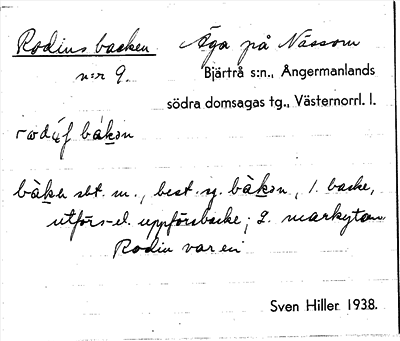 Rodins backen Äga på Nässom
n:r 9. Bjärtrå s:n., Ångermanlands
södra domsagas tg., Västernorrl. l.
bàkən
bàkɐ sbt. m., best. sg. bàkən, 1. backe,
utförs- el. uppförsbacke; 2. markytan.
Rodin var en
Sven Hiller 1938.